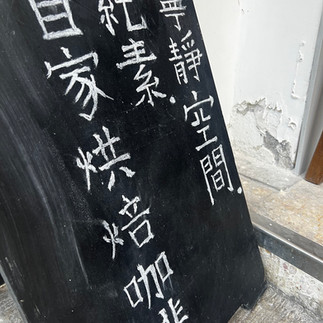 寧靜空間.
純素.
自家烘焙咖啡